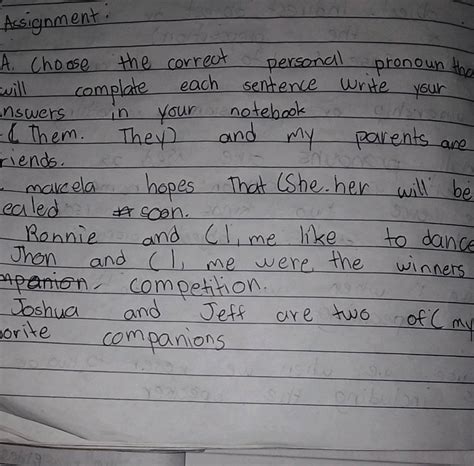 Assignment:
A. Choose the correct personal pronoun tha
will complate each sentence write your
nswers in your notebook
(Them. They) and my parents are
riends.
marcela hopes That (She. her will be
ealed soon.
Ronnie and (I, me like to dance
Jhon and (I, me were the winners
mpanion competition.
Joshua and Jeff are two of (my
orite companions